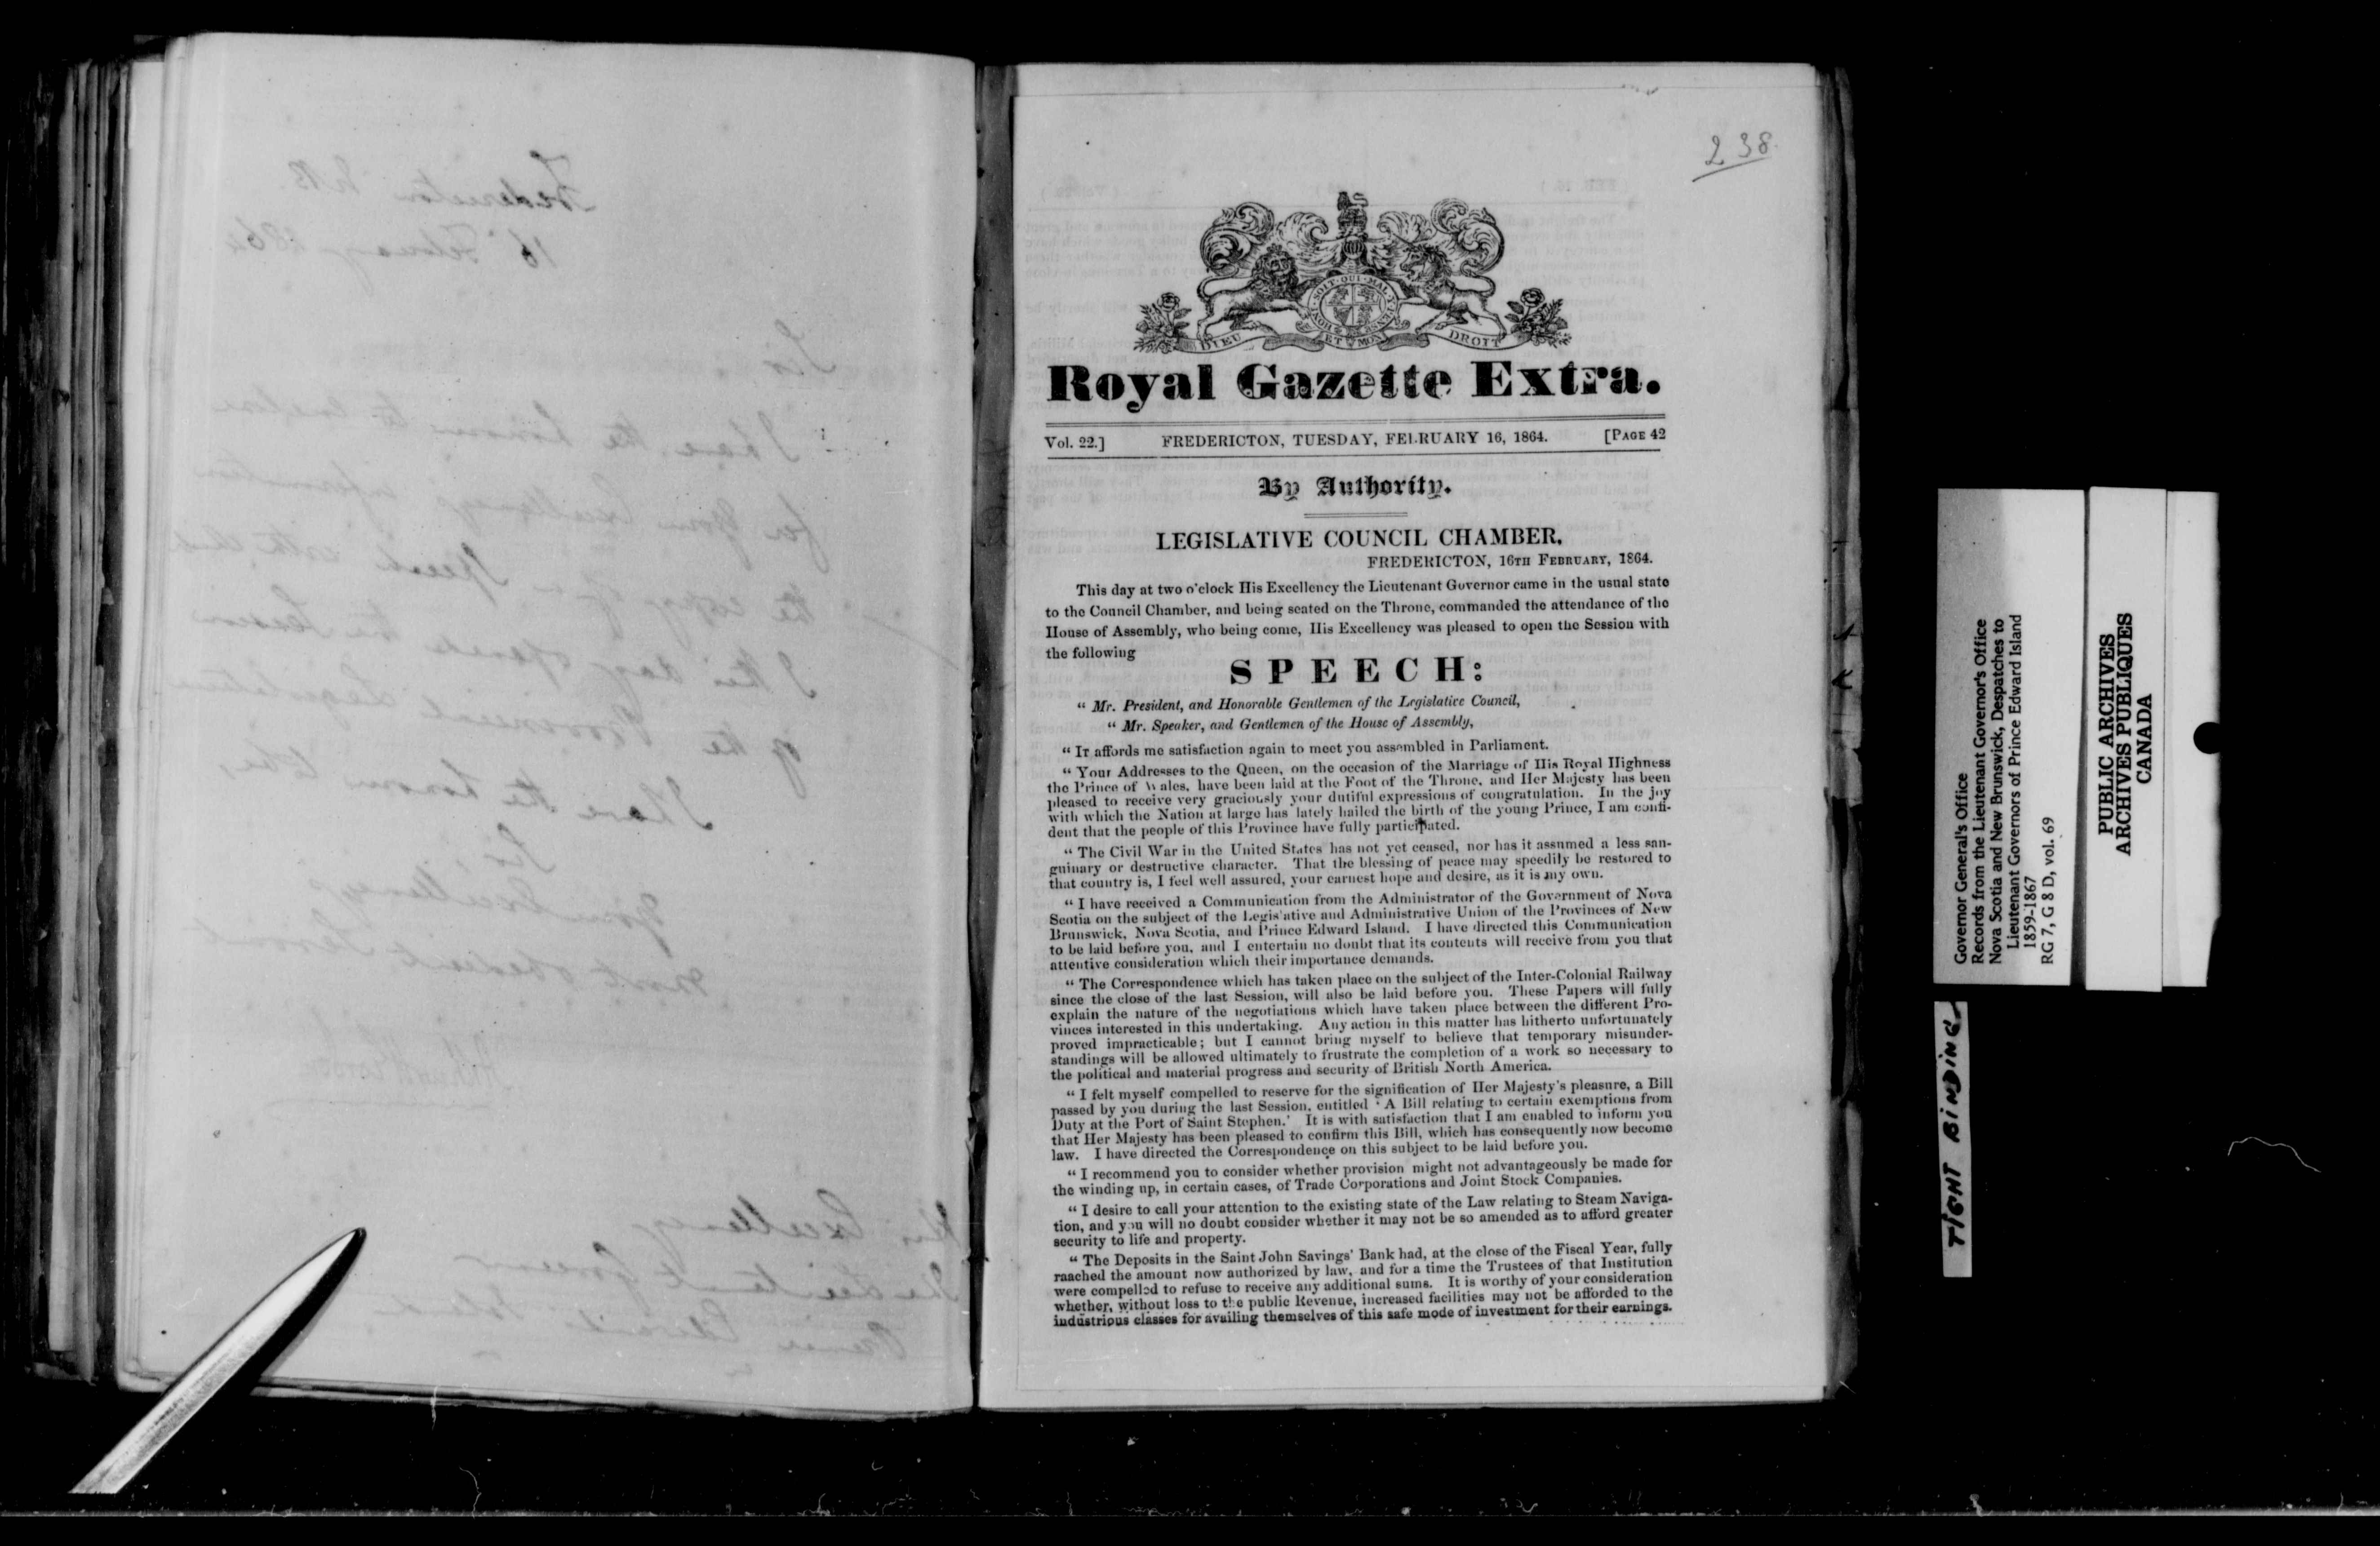 238
DIEU ET MON DROIT
Royal Gazette Extra.
Vol. 22.] FREDERICTON, TUESDAY, FEBRUARY 16, 1864. [PAGE 42
By Authority.
LEGISLATIVE COUNCIL CHAMBER,
FREDERICTON, 16TH FEBRUARY, 1864.
This day at two o'clock His Excellency the Lieutenant Governor came in the usual state
to the Council Chamber, and being seated on the Throne, commanded the attendance of the
House of Assembly, who being come, His Excellency was pleased to open the Session with
the following
SPEECH:
“ Mr. President, and Honorable Gentlemen of the Legislative Council,
“ Mr. Speaker, and Gentlemen of the House of Assembly,
“ IT affords me satisfaction again to meet you assembled in Parliament.
“ Your Addresses to the Queen, on the occasion of the Marriage of His Royal Highness
the Prince of Wales, have been laid at the Foot of the Throne, and Her Majesty has been
pleased to receive very graciously your dutiful expressions of congratulation. In the joy
with which the Nation at large has lately hailed the birth of the young Prince, I am confi-
dent that the people of this Province have fully participated.
“ The Civil War in the United States has not yet ceased, nor has it assumed a less san-
guinary or destructive character. That the blessing of peace may speedily be restored to
that country is, I feel well assured, your earnest hope and desire, as it is my own.
“ I have received a Communication from the Administrator of the Government of Nova
Scotia on the subject of the Legislative and Administrative Union of the Provinces of New
Brunswick, Nova Scotia, and Prince Edward Island. I have directed this Communication
to be laid before you, and I entertain no doubt that its contents will receive from you that
attentive consideration which their importance demands.
“ The Correspondence which has taken place on the subject of the Inter-Colonial Railway
since the close of the last Session, will also be laid before you. These Papers will fully
explain the nature of the negotiations which have taken place between the different Pro-
vinces interested in this undertaking. Any action in this matter has hitherto unfortunately
proved impracticable; but I cannot bring myself to believe that temporary misunder-
standings will be allowed ultimately to frustrate the completion of a work so necessary to
the political and material progress and security of British North America.
“ I felt myself compelled to reserve for the signification of Her Majesty's pleasure, a Bill
passed by you during the last Session, entitled ‘ A Bill relating to certain exemptions from
Duty at the Port of Saint Stephen.’ It is with satisfaction that I am enabled to inform you
that Her Majesty has been pleased to confirm this Bill, which has consequently now become
law. I have directed the Correspondence on this subject to be laid before you.
“ I recommend you to consider whether provision might not advantageously be made for
the winding up, in certain cases, of Trade Corporations and Joint Stock Companies.
“ I desire to call your attention to the existing state of the Law relating to Steam Naviga-
tion, and you will no doubt consider whether it may not be so amended as to afford greater
security to life and property.
“ The Deposits in the Saint John Savings' Bank had, at the close of the Fiscal Year, fully
raached the amount now authorized by law, and for a time the Trustees of that Institution
were compelled to refuse to receive any additional sums. It is worthy of your consideration
whether, without loss to the public Revenue, increased facilities may not be afforded to the
industrious classes for availing themselves of this safe mode of investment for their earnings.
Governor General's Office
Records from the Lieutenant Governor's Office
Nova Scotia and New Brunswick, Despatches to
Lieutenant Governors of Prince Edward Island
1859-1867
RG 7, G 8 D, vol. 69
PUBLIC ARCHIVES
ARCHIVES PUBLIQUES
CANADA
TIGHT BINDING